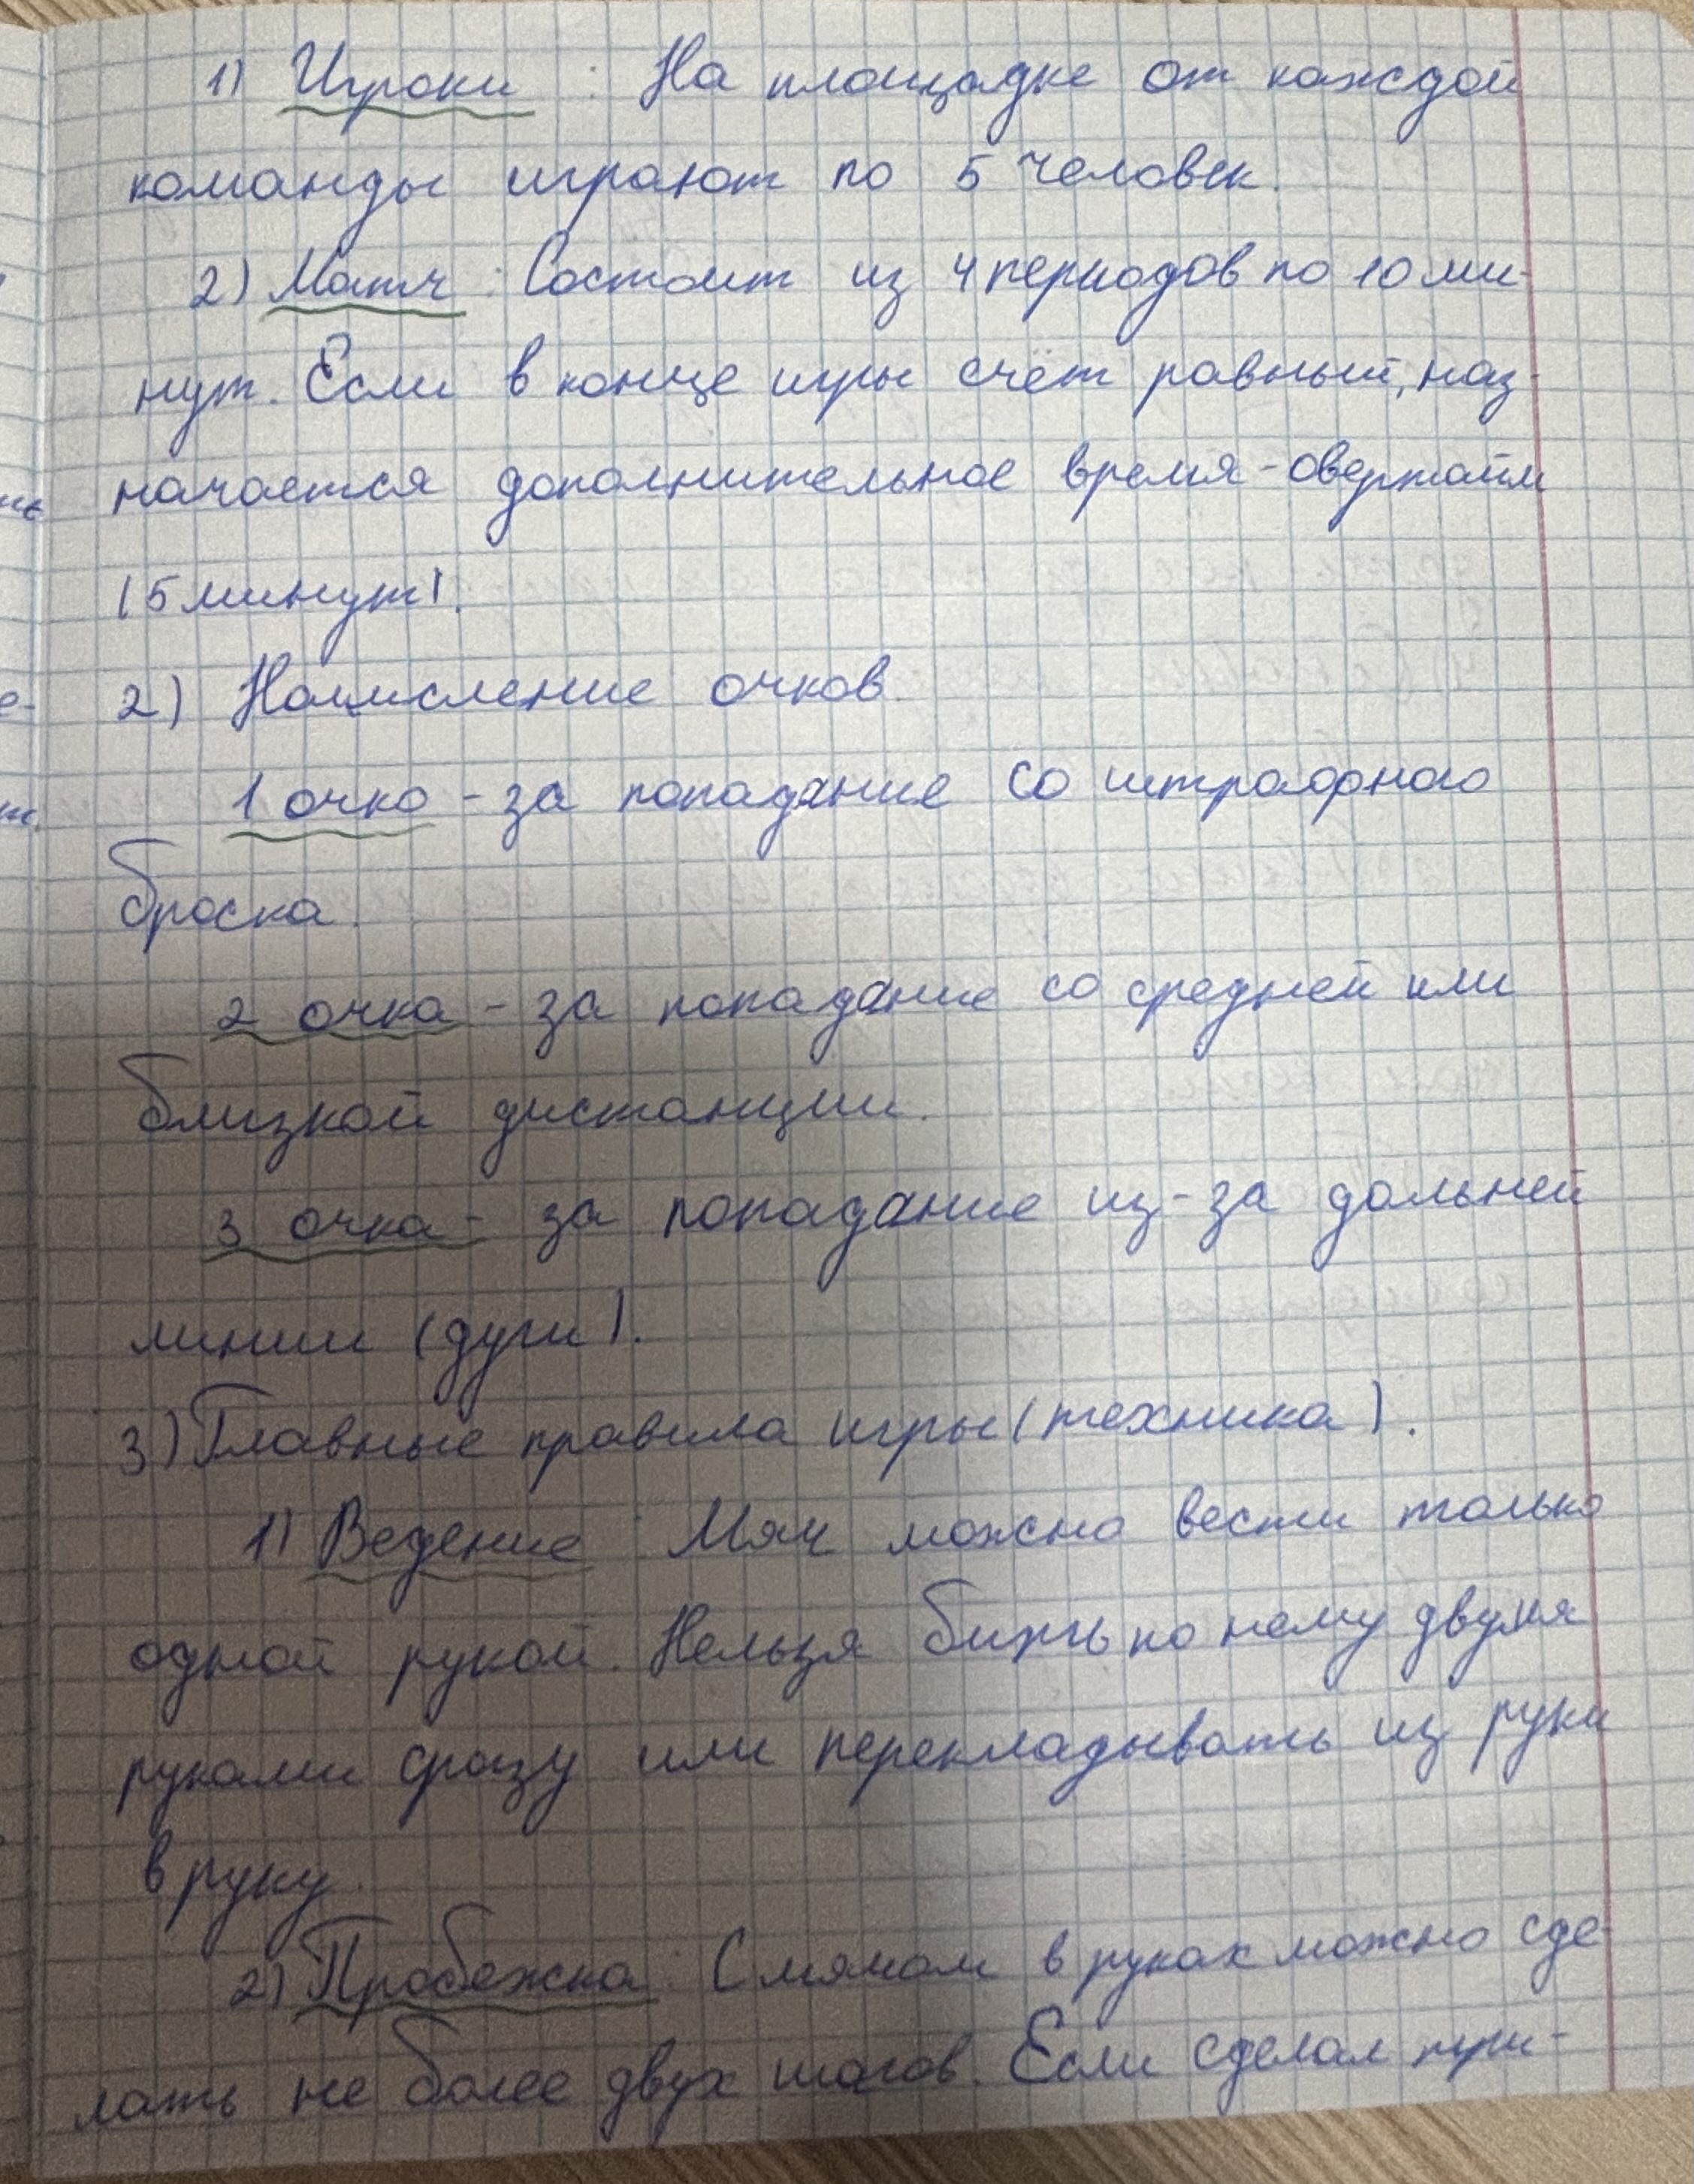 1) Игроки : На площадке от каждой
команды играют по 5 человек.
2) Матч : Состоит из 4 периодов по 10 ми-
нут. Если в конце игры счёт равный, наз-
начается дополнительное время - овертайм
(5 минут).
2) Начисление очков.
1 очко - за попадание со штрафного
броска.
2 очка - за попадание со средней или
близкой дистанции.
3 очка - за попадание из-за дальней
линии (дуги).
3) Главные правила игры (техника).
1) Ведение : Мяч можно вести только
одной рукой. Нельзя бить по нему двумя
руками сразу или перекладывать из руки
в руку.
2) Пробежка : С мячом в руках можно сде-
лать не более двух шагов. Если сделал